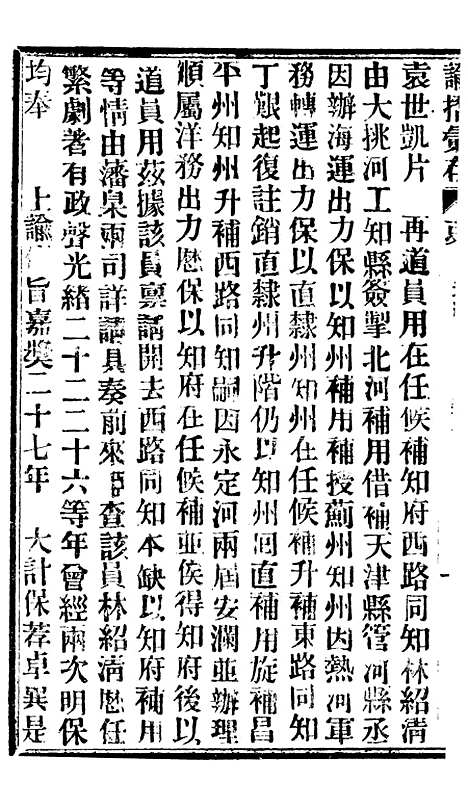 諭摺彙存
袁世凱片　再道員用在任候補知府西路同知林紹清
由大挑河工知縣簽掣北河補用借補天津縣管河縣丞
因辦海運出力保以知州補用補授薊州知州因熱河軍
務轉運出力保以直隸州知州在任候補升補東路同知
丁艱起復註銷直隸州升階仍以知州回直補用旋補昌
平州知州升補西路同知嗣因永定河兩屆安瀾並辦理
順屬洋務出力歷保以知府在任候補並俟得知府後以
道員用茲據該員稟請開去西路同知本缺以知府補用
等情由藩臬兩司詳請具奏前來臣查該員林紹清歷任
繁劇著有政聲光緒二十二二十六等年曾經兩次明保
均奉　　上諭　旨嘉獎二十七年　大計保荐卓異是